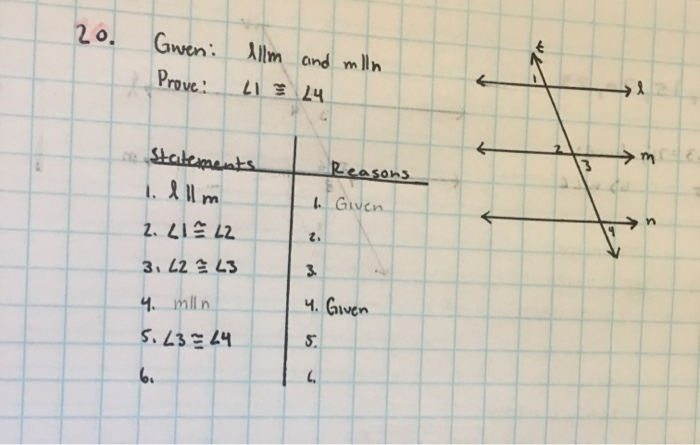 20. Given: l||m and m||n
Prove: ∠1 ≅ ∠4
Statements Reasons
1. l||m 1. Given
2. ∠1 ≅ ∠2 2.
3. ∠2 ≅ ∠3 3.
4. m||n 4. Given
5. ∠3 ≅ ∠4 5.
6. 6.
t
1 l
2 m
3
4 n